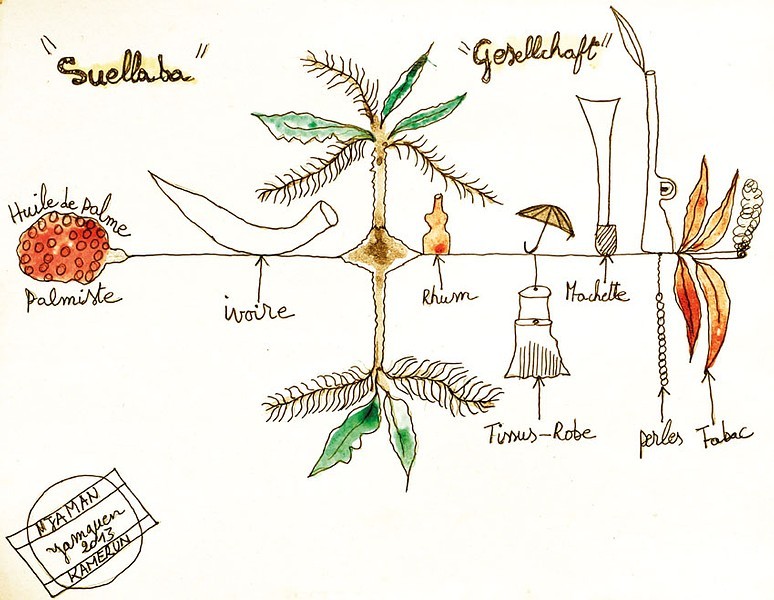 "Suellaba"
"Gesellchaft"
Huile de palme
palmiste
ivoire
Rhum
Machette
Tissus-Robe
perles
Tabac
yamguen
2013
KAMERUN